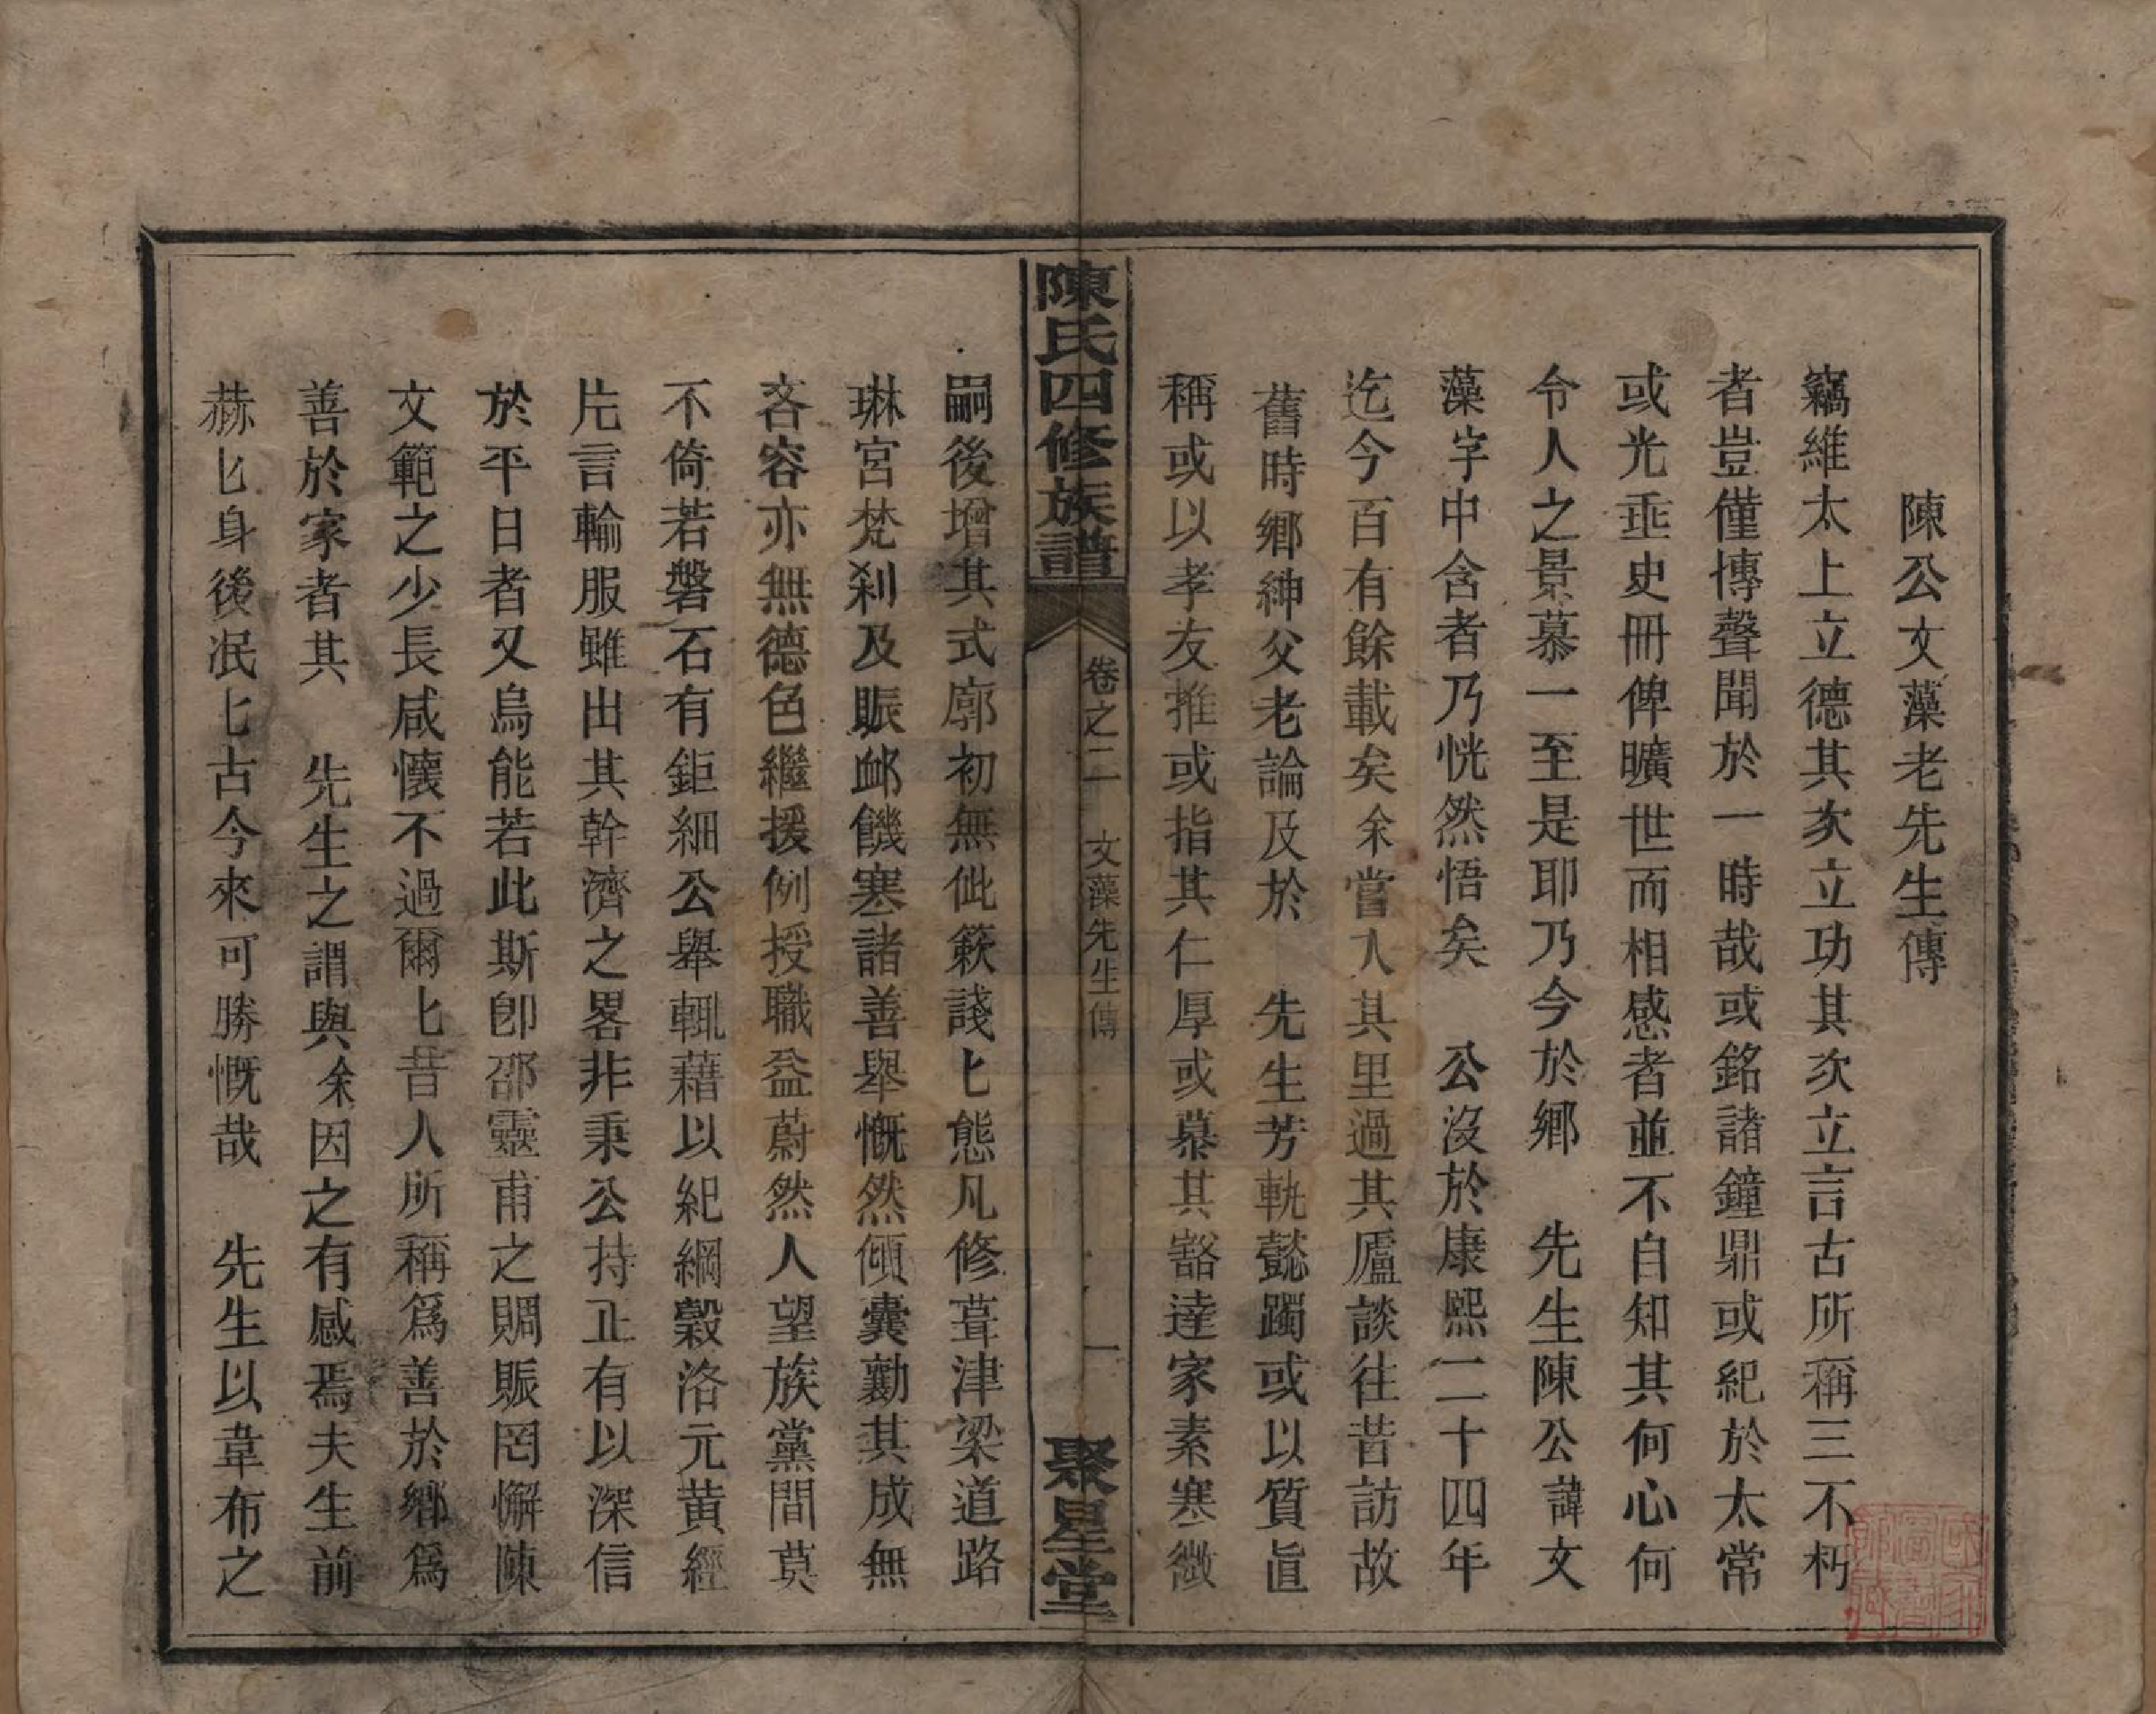 陳公文藻老先生傳
竊維太上立德其次立功其次立言古所稱三不朽
者豈僅博聲聞於一時哉或銘諸鐘鼎或紀於太常
或光垂史冊俾曠世而相感者並不自知其何心何
令人之景慕一至是耶乃今於鄉　先生陳公諱文
藻字中含者乃恍然悟矣　公沒於康熙二十四年
迄今百有餘載矣余嘗入其里過其廬談往昔訪故
舊時鄉紳父老論及於　先生芳軌懿躅或以質直
稱或以孝友推或指其仁厚或慕其豁達家素寒微
陳氏四修族譜
卷之二　文藻先生傳　一
聚星堂
嗣後增其式廓初無仳簌諓匕態凡修葺津梁道路
琳宮梵剎及賑邺饑寒諸善舉慨然傾囊勷其成無
吝容亦無德色繼援例授職益蔚然人望族黨間莫
不倚若磐石有鉅細公舉輒藉以紀綱穀洛元黃經
片言輸服雖出其幹濟之畧非秉公持正有以深信
於平日者又烏能若此斯卽邵靈甫之賙賑罔懈陳
文範之少長咸懷不過爾匕昔人所稱爲善於鄉爲
善於家者其　先生之謂與余因之有感焉夫生前
赫匕身後泯匕古今來可勝慨哉　先生以韋布之